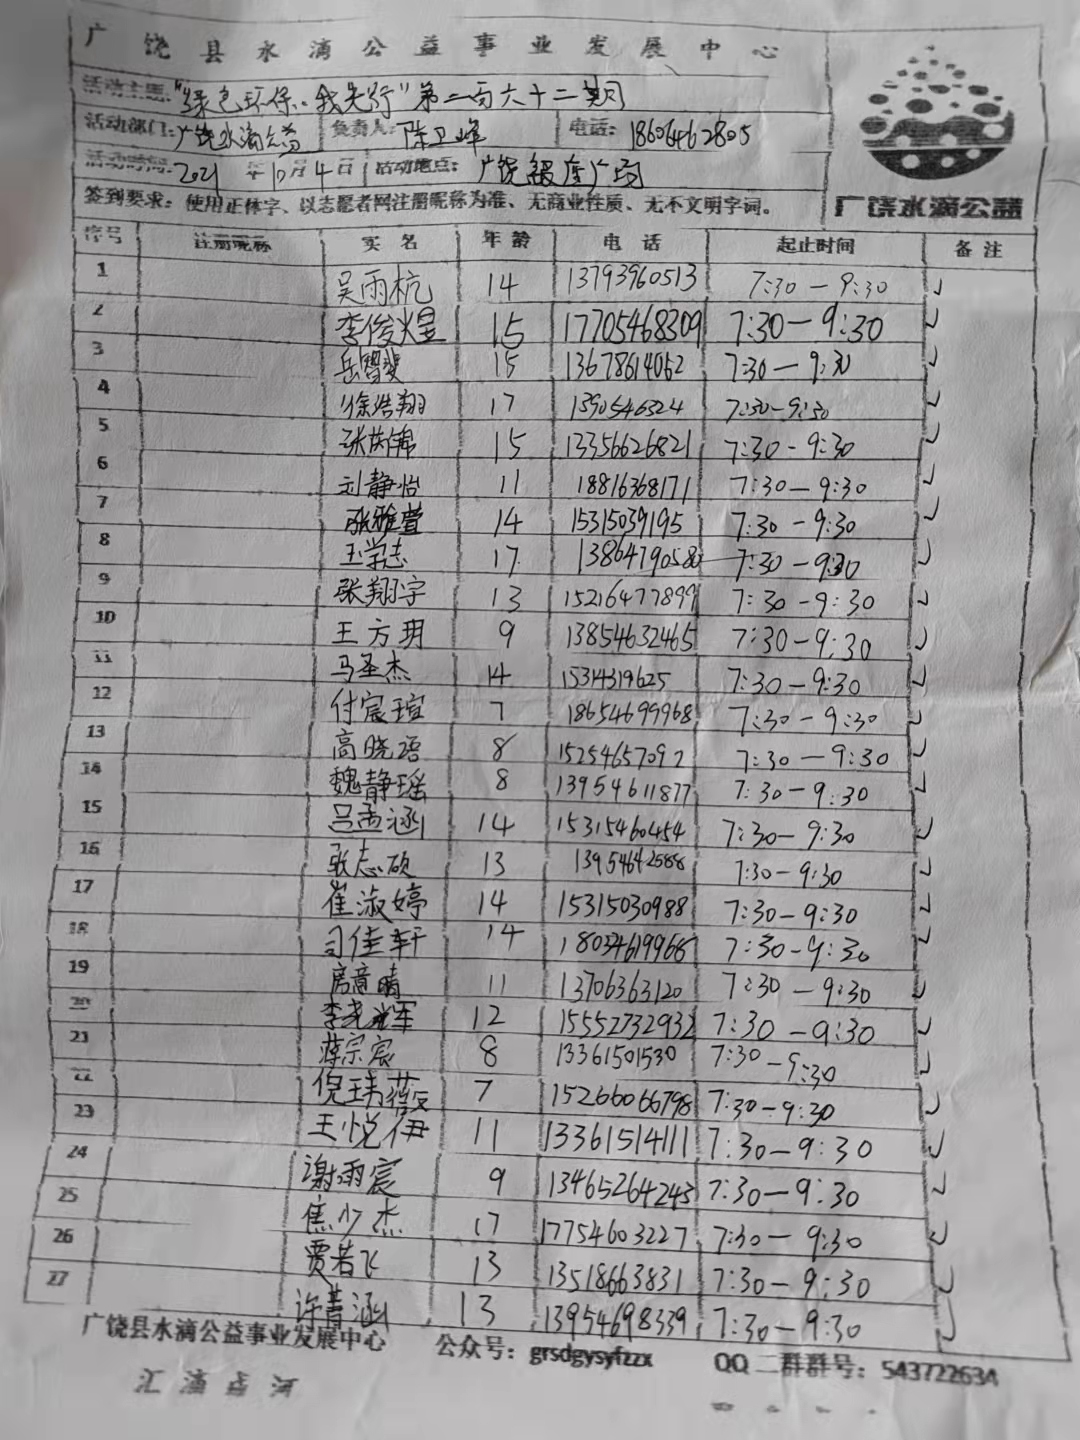 广饶县水滴公益事业发展中心
活动主题:"绿色环保、我先行"第二百六十二期
活动部门:广饶水滴公益 负责人:陈卫峰 电话:18606462805
活动时间:2021年10月4日 活动地点:广饶银座广场
签到要求:使用正体字、以志愿者网注册昵称为准、无商业性质、无不文明字词。
广饶水滴公益
序号 注册昵称 实名 年龄 电话 起止时间 备注
1 吴雨杭 14 13793960513 7:30-9:30 √
2 李俊煜 15 17705468309 7:30-9:30 √
3 岳智斐 15 13678614062 7:30-9:30 √
4 徐浩翔 17 1390546324 7:30-9:30 √
5 张 锦 15 13356626821 7:30-9:30 √
6 刘静怡 11 18816368171 7:30-9:30 √
7 张雅萱 14 15315039195 7:30-9:30 √
8 王学志 17 13864790580 7:30-9:30 √
9 张翔宇 13 15216477899 7:30-9:30 √
10 王方玥 9 13854632465 7:30-9:30 √
11 马圣杰 14 15314319625 7:30-9:30 √
12 付宸瑄 7 18654699968 7:30-9:30 √
13 高晓语 8 15254657092 7:30-9:30 √
14 魏静瑶 8 13954611877 7:30-9:30 √
15 吕孟涵 14 15315460454 7:30-9:30 √
16 张志硕 13 13954642588 7:30-9:30 √
17 崔淑婷 14 15315030988 7:30-9:30 √
18 司佳轩 14 18034619966 7:30-9:30 √
19 房意晴 11 13706363120 7:30-9:30 √
20 李 军 12 15552732932 7:30-9:30 √
21 蒋宗宸 8 13361501530 7:30-9:30 √
22 倪玮薇 7 15266066798 7:30-9:30 √
23 王悦伊 11 13361514111 7:30-9:30 √
24 谢雨宸 9 13465264243 7:30-9:30 √
25 焦少杰 17 17754603227 7:30-9:30 √
26 贾若飞 13 13518663831 7:30-9:30 √
27 许菁涵 13 13954698339 7:30-9:30 √
广饶县水滴公益事业发展中心 公众号:grsdgysyfzzx QQ二群群号:543722634
汇滴成河